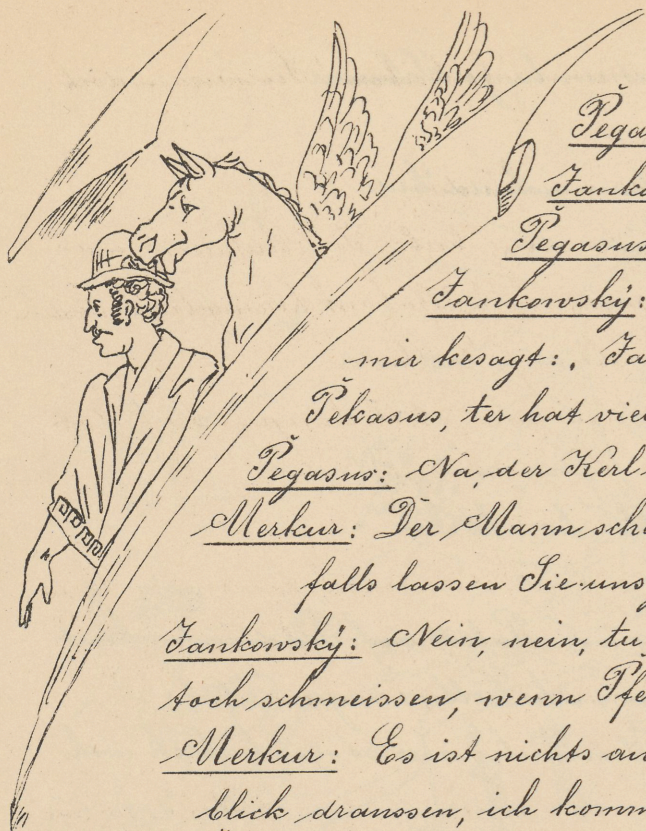 Pega
Janko
Pegasus
Jankowský:
mir kesagt: „ Ja
Pekasus, ter hat vie
Pegasus: Na, der Kerl
Merkur: Der Mann sch
falls lassen Sie uns
Jankowský: Nein, nein, tu
toch schmeissen, wenn Pfe
Merkur: Es ist nichts an
blick draussen, ich komm